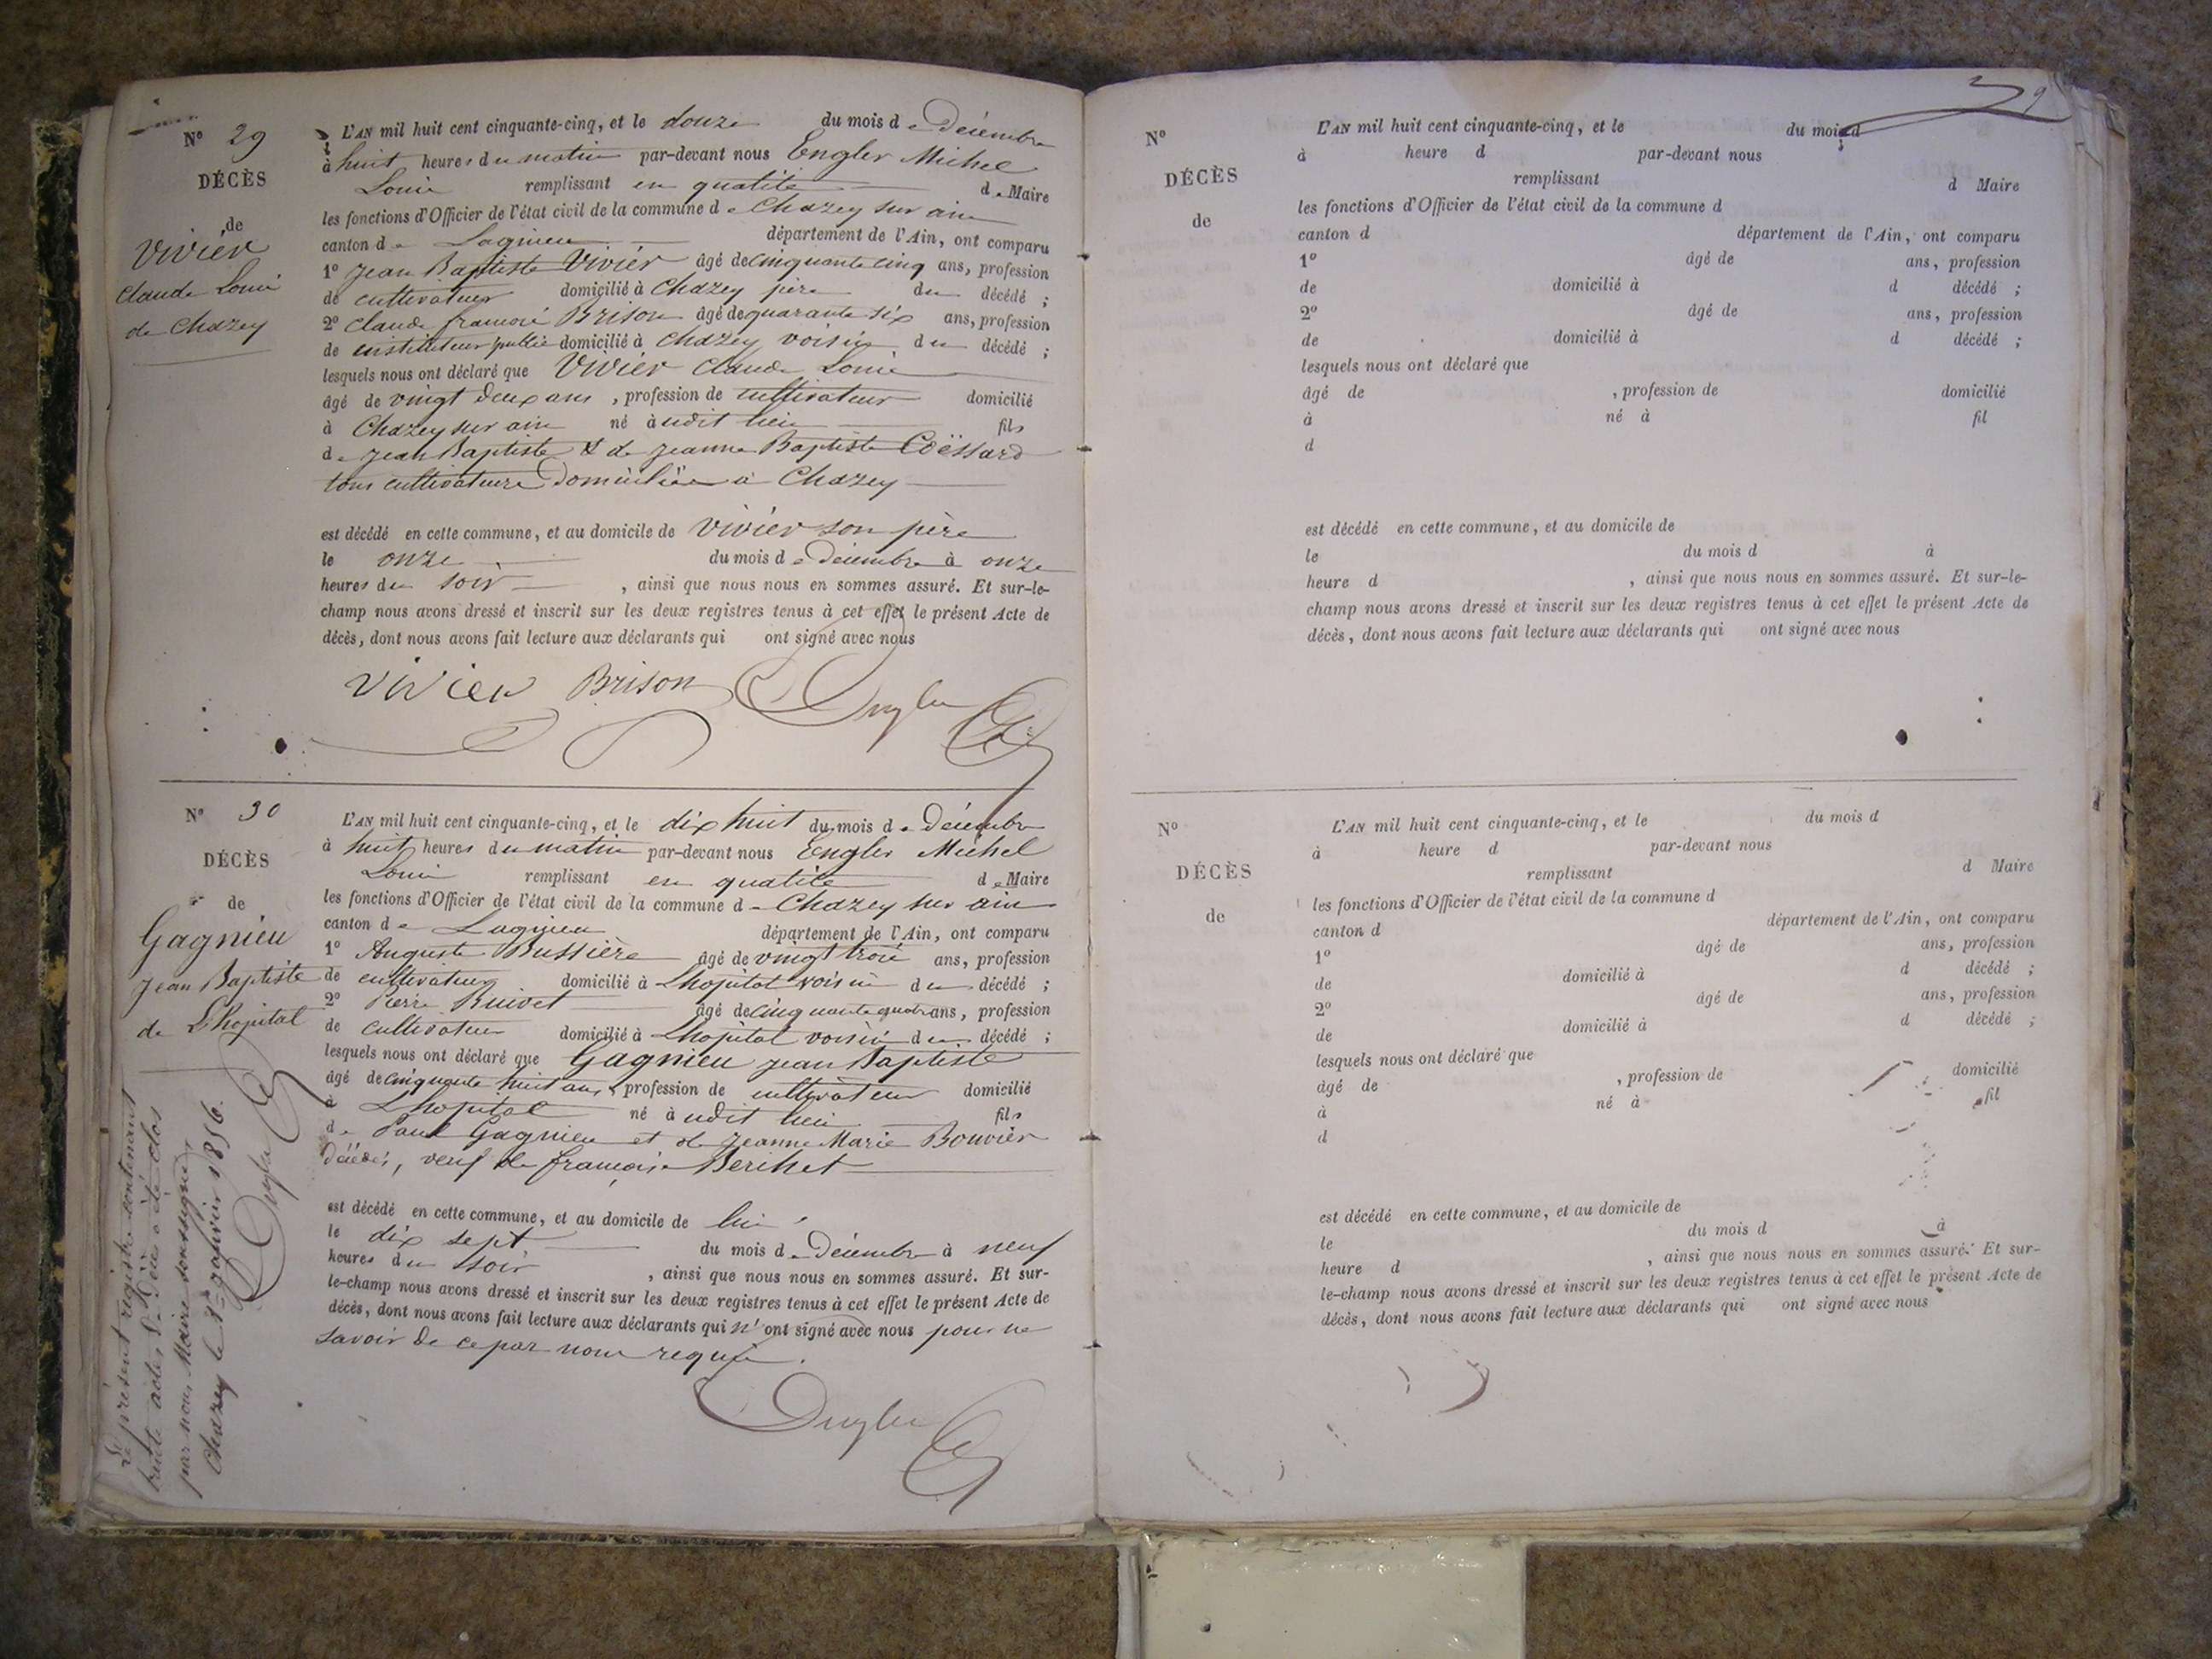 N° 29
DÉCÈS
de
Vivier
Claude Louis
de Chazey
L'AN mil huit cent cinquante-cinq, et le douze du mois de Décembre
à huit heures du matin par-devant nous Engler Michel
Louis remplissant en qualité de Maire
les fonctions d'Officier de l'état civil de la commune de Chazey sur ain
canton de Lagnieu département de l'Ain, ont comparu
1° Jean Baptiste Vivier âgé de cinquante cinq ans, profession
de cultivateur domicilié à Chazey père du décédé ;
2° Claude françois Brison âgé de quarante six ans, profession
de instituteur public domicilié à Chazey voisin du décédé ;
lesquels nous ont déclaré que Vivier Claude Louis
âgé de vingt deux ans , profession de cultivateur domicilié
à Chazey sur ain né à udit lieu fils
de Jean Baptiste & de Jeanne Baptiste Coëssard
tous cultivateurs domiciliés à Chazey
est décédé en cette commune, et au domicile de Vivier son père
le onze du mois de Décembre à onze
heures du soir , ainsi que nous nous en sommes assuré. Et sur-le-
champ nous avons dressé et inscrit sur les deux registres tenus à cet effet le présent Acte de
décès, dont nous avons fait lecture aux déclarants qui ont signé avec nous
Vivier Brison Engler
N° 30
DÉCÈS
de
Gagnieu
Jean Baptiste
de Lhopital
L'AN mil huit cent cinquante-cinq, et le dix huit du mois de Décembre
à huit heures du matin par-devant nous Engler Michel
Louis remplissant en qualité de Maire
les fonctions d'Officier de l'état civil de la commune de Chazey sur ain
canton de Lagnieu département de l'Ain, ont comparu
1° Auguste Bussière âgé de vingt trois ans, profession
de cultivateur domicilié à Lhopital voisin du décédé ;
2° Pierre Ruivet âgé de cinquante quatre ans, profession
de cultivateur domicilié à Lhopital voisin du décédé ;
lesquels nous ont déclaré que Gagnieu Jean Baptiste
âgé de cinquante huit ans, profession de cultivateur domicilié
à Lhopital né à udit lieu fils
de Paul Gagnieu et de Jeanne Marie Bouvier
Décédés, veuf de françoise Berthet
est décédé en cette commune, et au domicile de lui
le dix sept du mois de Décembre à neuf
heures du soir , ainsi que nous nous en sommes assuré. Et sur-
le-champ nous avons dressé et inscrit sur les deux registres tenus à cet effet le présent Acte de
décès, dont nous avons fait lecture aux déclarants qui n' ont signé avec nous pour ne
savoir de ce par nous requis.
Engler
Le présent registre contenant
trente actes de Décès a été clos
par nous, Maire soussigné
Chazey le 1er janvier 1856.
Engler
N°
DÉCÈS
de
L'AN mil huit cent cinquante-cinq, et le du mois d
à heure d par-devant nous
remplissant d Maire
les fonctions d'Officier de l'état civil de la commune d
canton d département de l'Ain, ont comparu
1° âgé de ans, profession
de domicilié à d décédé ;
2° âgé de ans, profession
de domicilié à d décédé ;
lesquels nous ont déclaré que
âgé de , profession de domicilié
à né à fil
d
est décédé en cette commune, et au domicile de
le du mois d à
heure d , ainsi que nous nous en sommes assuré. Et sur-le-
champ nous avons dressé et inscrit sur les deux registres tenus à cet effet le présent Acte de
décès, dont nous avons fait lecture aux déclarants qui ont signé avec nous
N°
DÉCÈS
de
L'AN mil huit cent cinquante-cinq, et le du mois d
à heure d par-devant nous
remplissant d Maire
les fonctions d'Officier de l'état civil de la commune d
canton d département de l'Ain, ont comparu
1° âgé de ans, profession
de domicilié à d décédé ;
2° âgé de ans, profession
de domicilié à d décédé ;
lesquels nous ont déclaré que
âgé de , profession de domicilié
à né à fil
d
est décédé en cette commune, et au domicile de
le du mois d à
heure d , ainsi que nous nous en sommes assuré. Et sur-
le-champ nous avons dressé et inscrit sur les deux registres tenus à cet effet le présent Acte de
décès, dont nous avons fait lecture aux déclarants qui ont signé avec nous